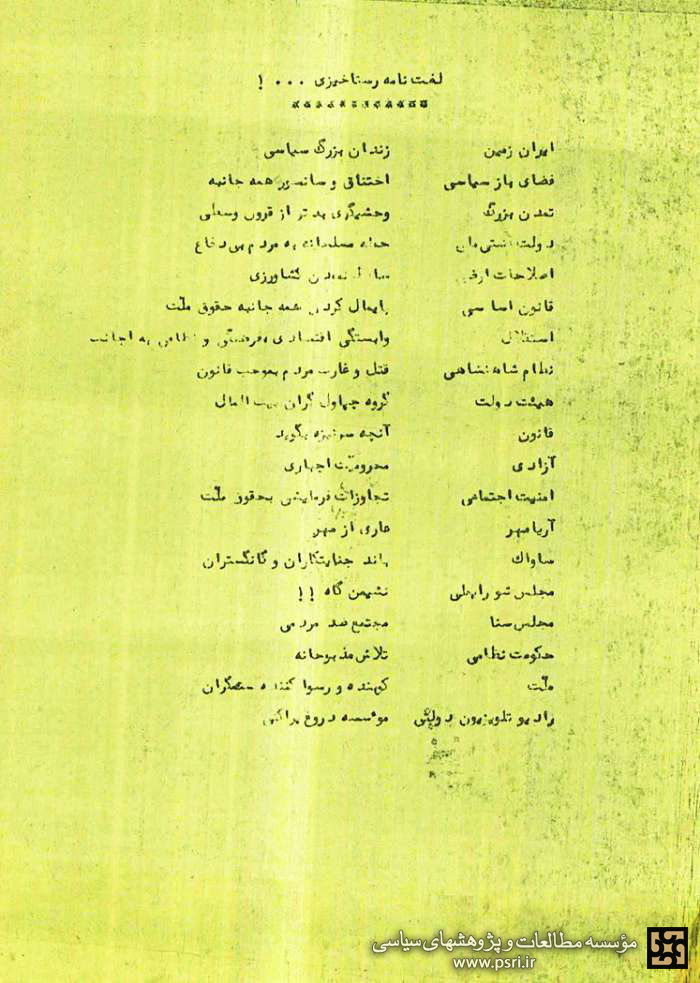 لغت نامه رستاخیزی ... !
ایران زمین زندان بزرگ سیاسی
فضای باز سیاسی اختناق و سانسور همه جانبه
تمدن بزرگ وحشیگری بدتر از قرون وسطی
دولت آشتی ملی حمله مسلحانه به مردم بی دفاع
اصلاحات ارضی کشاورزی
قانون اساسی پایمال کردن همه جانبه حقوق ملّت
استقلال وابستگی اقتصادی فرهنگی و نظامی به اجانب
نظام شاهنشاهی قتل و غارت مردم بموجب قانون
هیئت دولت گروه چپاول گران بیت المال
قانون آنچه سرنیزه بگوید
آزادی محرومیّت اجباری
امنیت اجتماعی تجاوزات فرمایشی بحقوق ملّت
آریامهر عاری از مهر
ساواك باند جنایتکاران و گانگستران
مجلس شورایملی نشیمن گاه !!
مجلس سنا مجتمع ضد مردمی
حکومت نظامی تلاش مذبوحانه
ملّت کوبنده و رسوا کننده ستمگران
رادیو تلویزیون دولتی مؤسسه دروغ پراکنی
مؤسسه مطالعات و پژوهشهای سیاسی
www.psri.ir